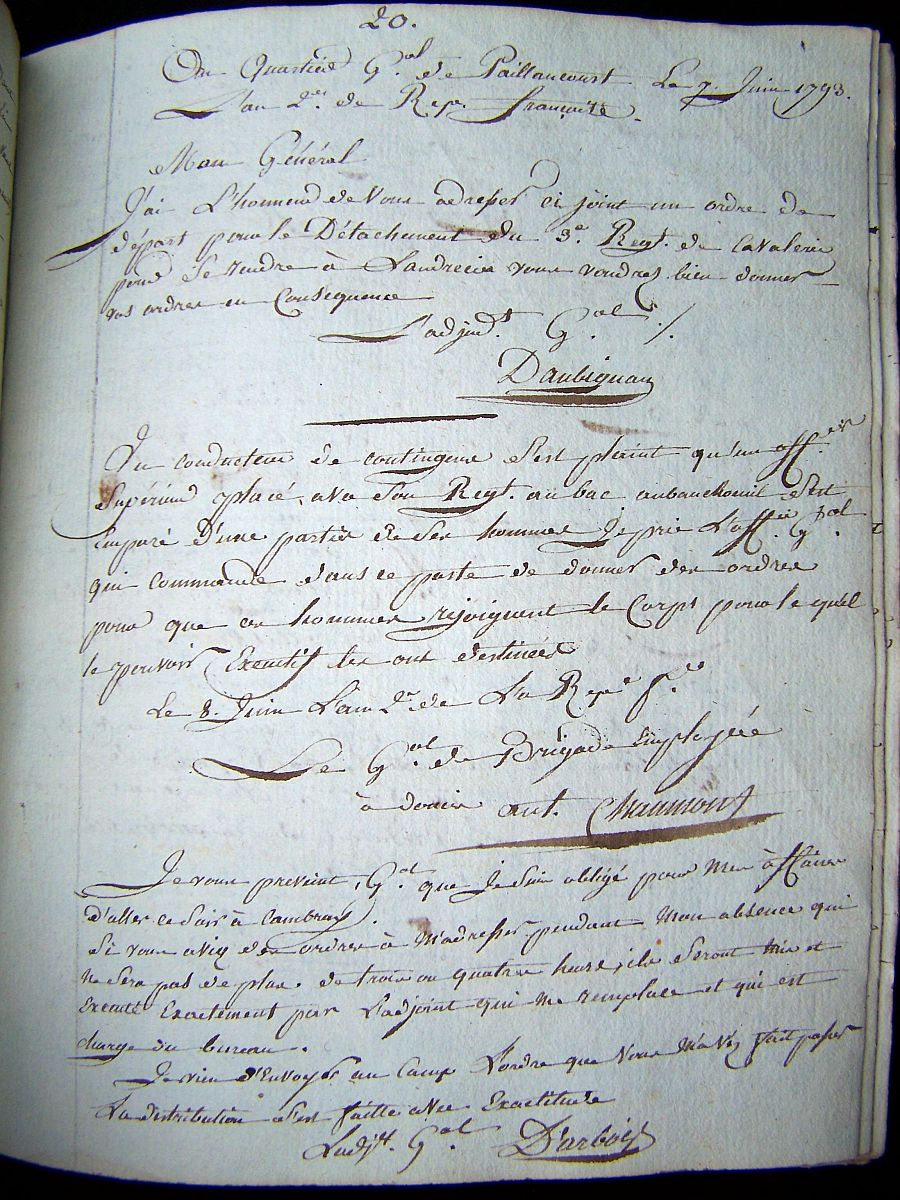 20.
Du Quartiéé G.al de Paillancourt Le 7. Juin 1793.
L'an 2.e de Rep.e française.
Mon Général
J'ai L'honneur de vous adresser ci joint un ordre de
départ pour le Détachement du 3.e Regt. de Cavalerie
pour se rendre à Landrecies vous voudrez bien donner
vos ordres en Consequence
L'adjud.t G.al ./.
Daubignan
Un conducteur de contingens s'est plaint qu'un off.er
Supérieur placé avec son Regt. au bac aubancheuil s'est
Emparé d'une partie de ses hommes Je prie L'off.er G.ral
qui commande dans ce poste de donner des ordres
pour que ces hommes rejoignent le Corps pour le quel
le pouvoir Executif les ont destinées
Le 8. Juin L'an 2.e de La Rep.e f.se
Le G.al de Brigade Employée
à douai ant. Chaumont
Je vous previent, G.al que Je suis obligé pour mes affaires
d'aller ce soir à Cambray.
Si vous aviez des ordres à m'adresser pendant mon absence qui
ne sera pas de plus de trois ou quatre heures, ils seront mis et
Executé Exactement par L'adjoint qui me remplace et qui est
chargé du bureau.
Je viens d'Envoyer au Camp L'ordre que vous m'avez fait passer
La distribution s'est faitte avec Exactitude
L'adjt. G.al Darbois